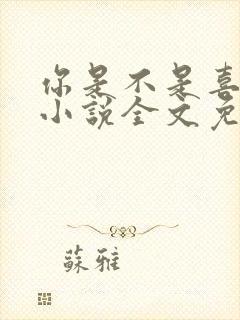 你是不是喜
小說全文免
蘇雅